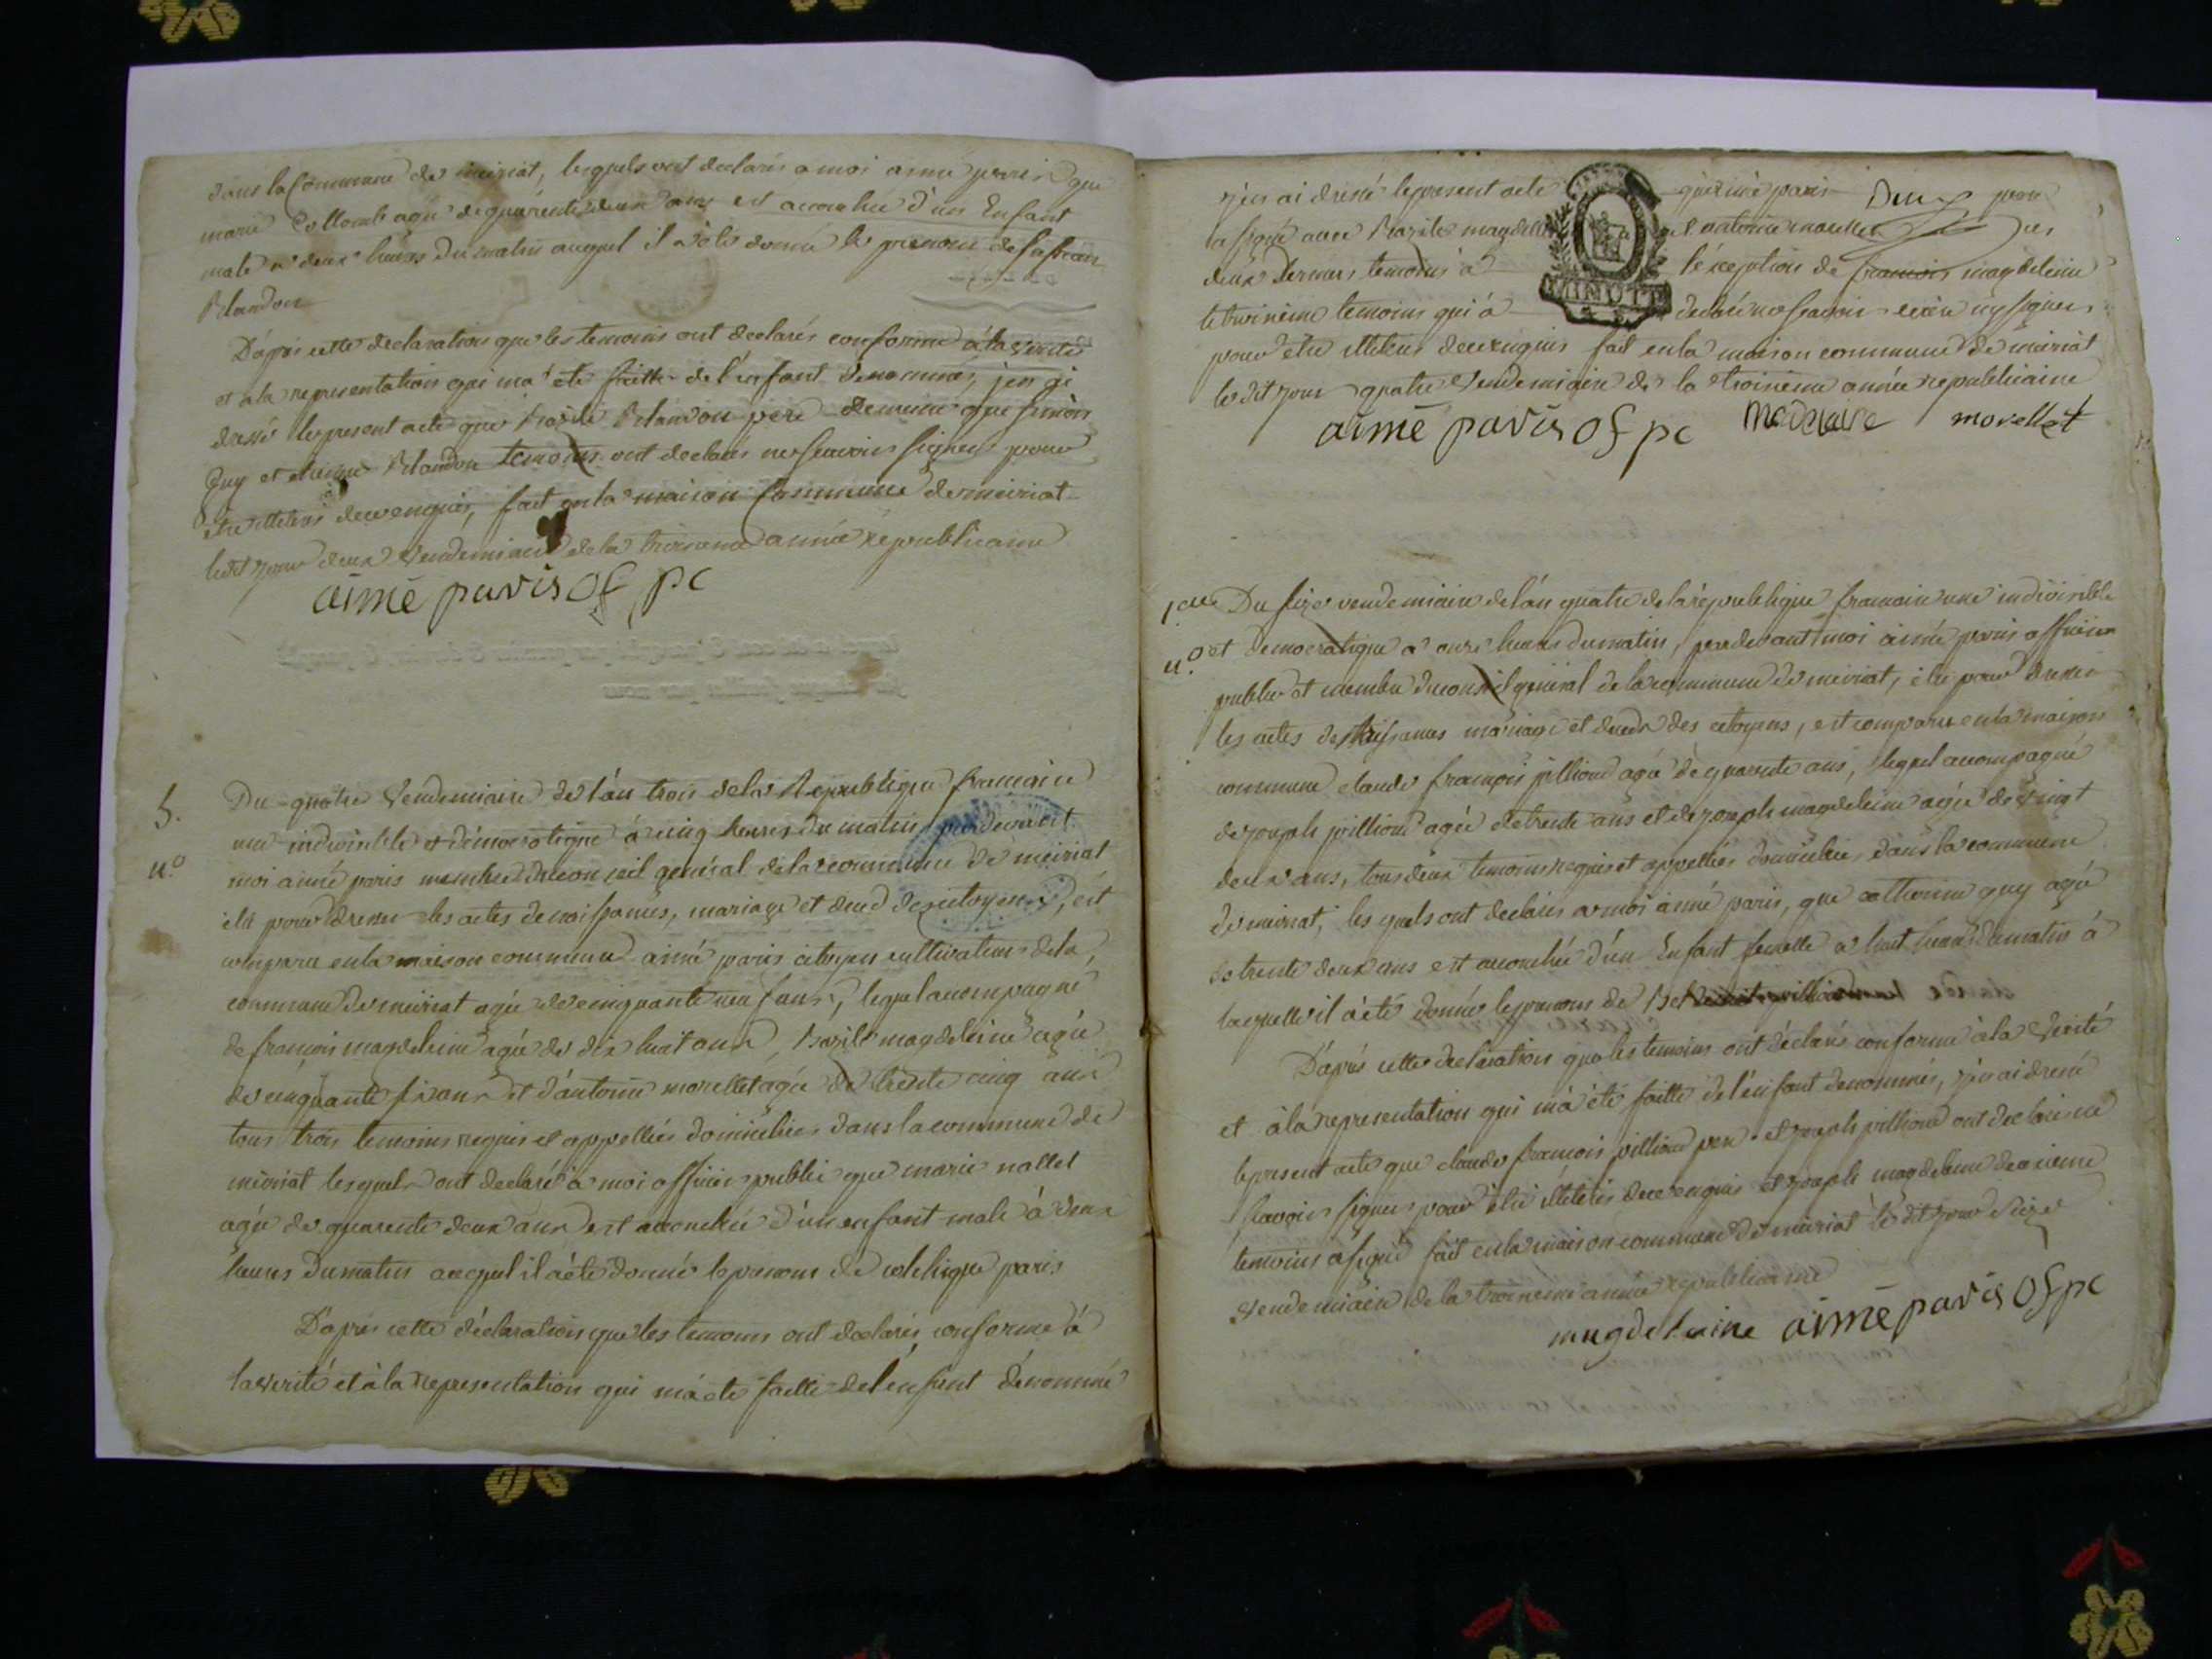 dans la Commune de meiriat, lesquels ont declarés a moi aimé paris que
marie Collomb agée de quarente deux ans est acouchée d'un Enfant
male a deux heures du matin auquel il a été donné le prenom de
Blandon
D'aprés cette declaration que les temoins ont declarés conforme a la verité
et a la representation qui m'a été faitte de l'enfant denommé, j'en ai
dressé le present acte que Basile Blandon pere de meme que simon
Guy et etienne Blandon temoins ont declarés ne scavoir signer pour
etre illiteris de ce enquis, fait en la maison Commune de meiriat
ledit jour deux Vendemiaire de la troisieme année republicaine
aimé paris of pc
5.
n.o
Du quatre Vendemiaire de l'an trois de la Republique francaise
une indivisible et démocratique à cinq heures du matin pardevant
moi aimé paris membre du conseil general de la commune de meiriat
élu pour dresser les actes de naissances, mariage et deced des citoyens, est
comparu en la maison commune aimé paris citoyen cultivateur de la
commune de meiriat agée de cinquante neuf ans, lequel acompagné
de francois magdeleine agée de dix huit ans, Bazile magdeleine agée
de cinquante six ans et d'antoine morellet agée de trente cinq ans
tous trois temoins requis et appellées domiciliées dans la commune de
meiriat lesquels ont declaré à moi officier public que marie nallet
agée de quarente deux ans est acouchée d'un enfant male à deux
heures du matin auquel il a été donné le prenom de paris
D'aprés cette déclaration que les temoins ont declarés conforme à
la verité et à la representation qui m'a été faitte de l'enfant dénommé
j'en ai dressé le present acte que aimé paris Deux pour
a signé avec Bazile magdelei et antoine morellet les
deux derniers temoins à l'éxception de francois magdeleine
MINUTE
le troisieme temoins qui à declaré ne scavoir ecrire ny signer
pour etre illiteris de ce enquis fait en la maison commune de meiriat
le dit jour quatre Vendemiaire de la troisieme année republicaine
aimé paris of pc morellet
n.o
Du seize vendemiaire de l'an quatre de la republique francaise une indivisible
et democratique a onze heures du matin, pardevant moi aimé paris officier
public et membre du conseil général de la commune de meiriat, élu pour dresser
les actes de Naissances mariage et deceds des citoyens, est comparu en la maison
commune claude francois pilliond agée de quarente ans, lequel acompagné
de joseph pilliond agée de trente ans et de joseph magdeleine agée de vingt
deux ans, tous deux temoins requis et appellées domiciliées dans la commune
de meiriat, les quels ont declarés a moi aimé paris, que catherine guy agée
de trente deux ans est acouchée d'un Enfant femelle a huit heures du matin à
laquelle il à été donnée le prenom de
D'aprés cette declaration que les temoins ont déclarés conforme à la verité
et à la representation qui m'a été faitte de l'enfant denommée, j'en ai dressé
le present acte que claude francois pilliond pere et joseph pilliond ont declarés ne
scavoir signer pour etre illiteris de ce enquis et joseph magdeleine deuxieme
temoins a signé fait en la maison commune de meiriat le dit jour seize
vendemiaire de la troisieme année republicaine
magdelaine aimé paris of pc